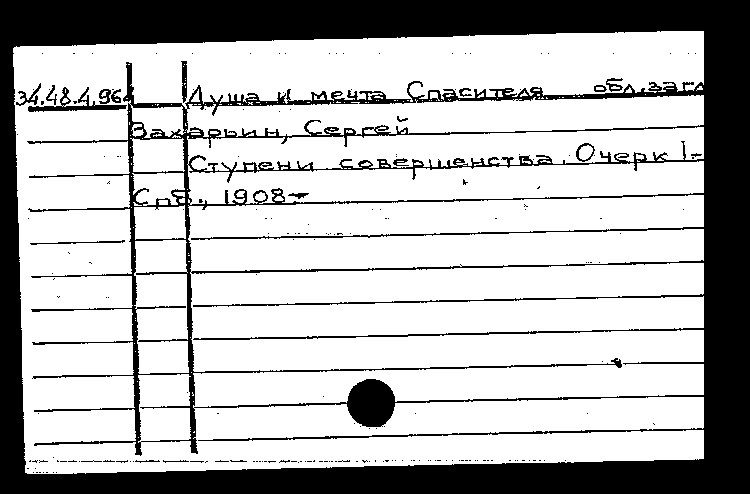 34.48.4.964 Душа и мечта Спасителя обл.загл
Захарьин, Сергей
Ступени совершенства. Очерк 1-
Спб., 1908-